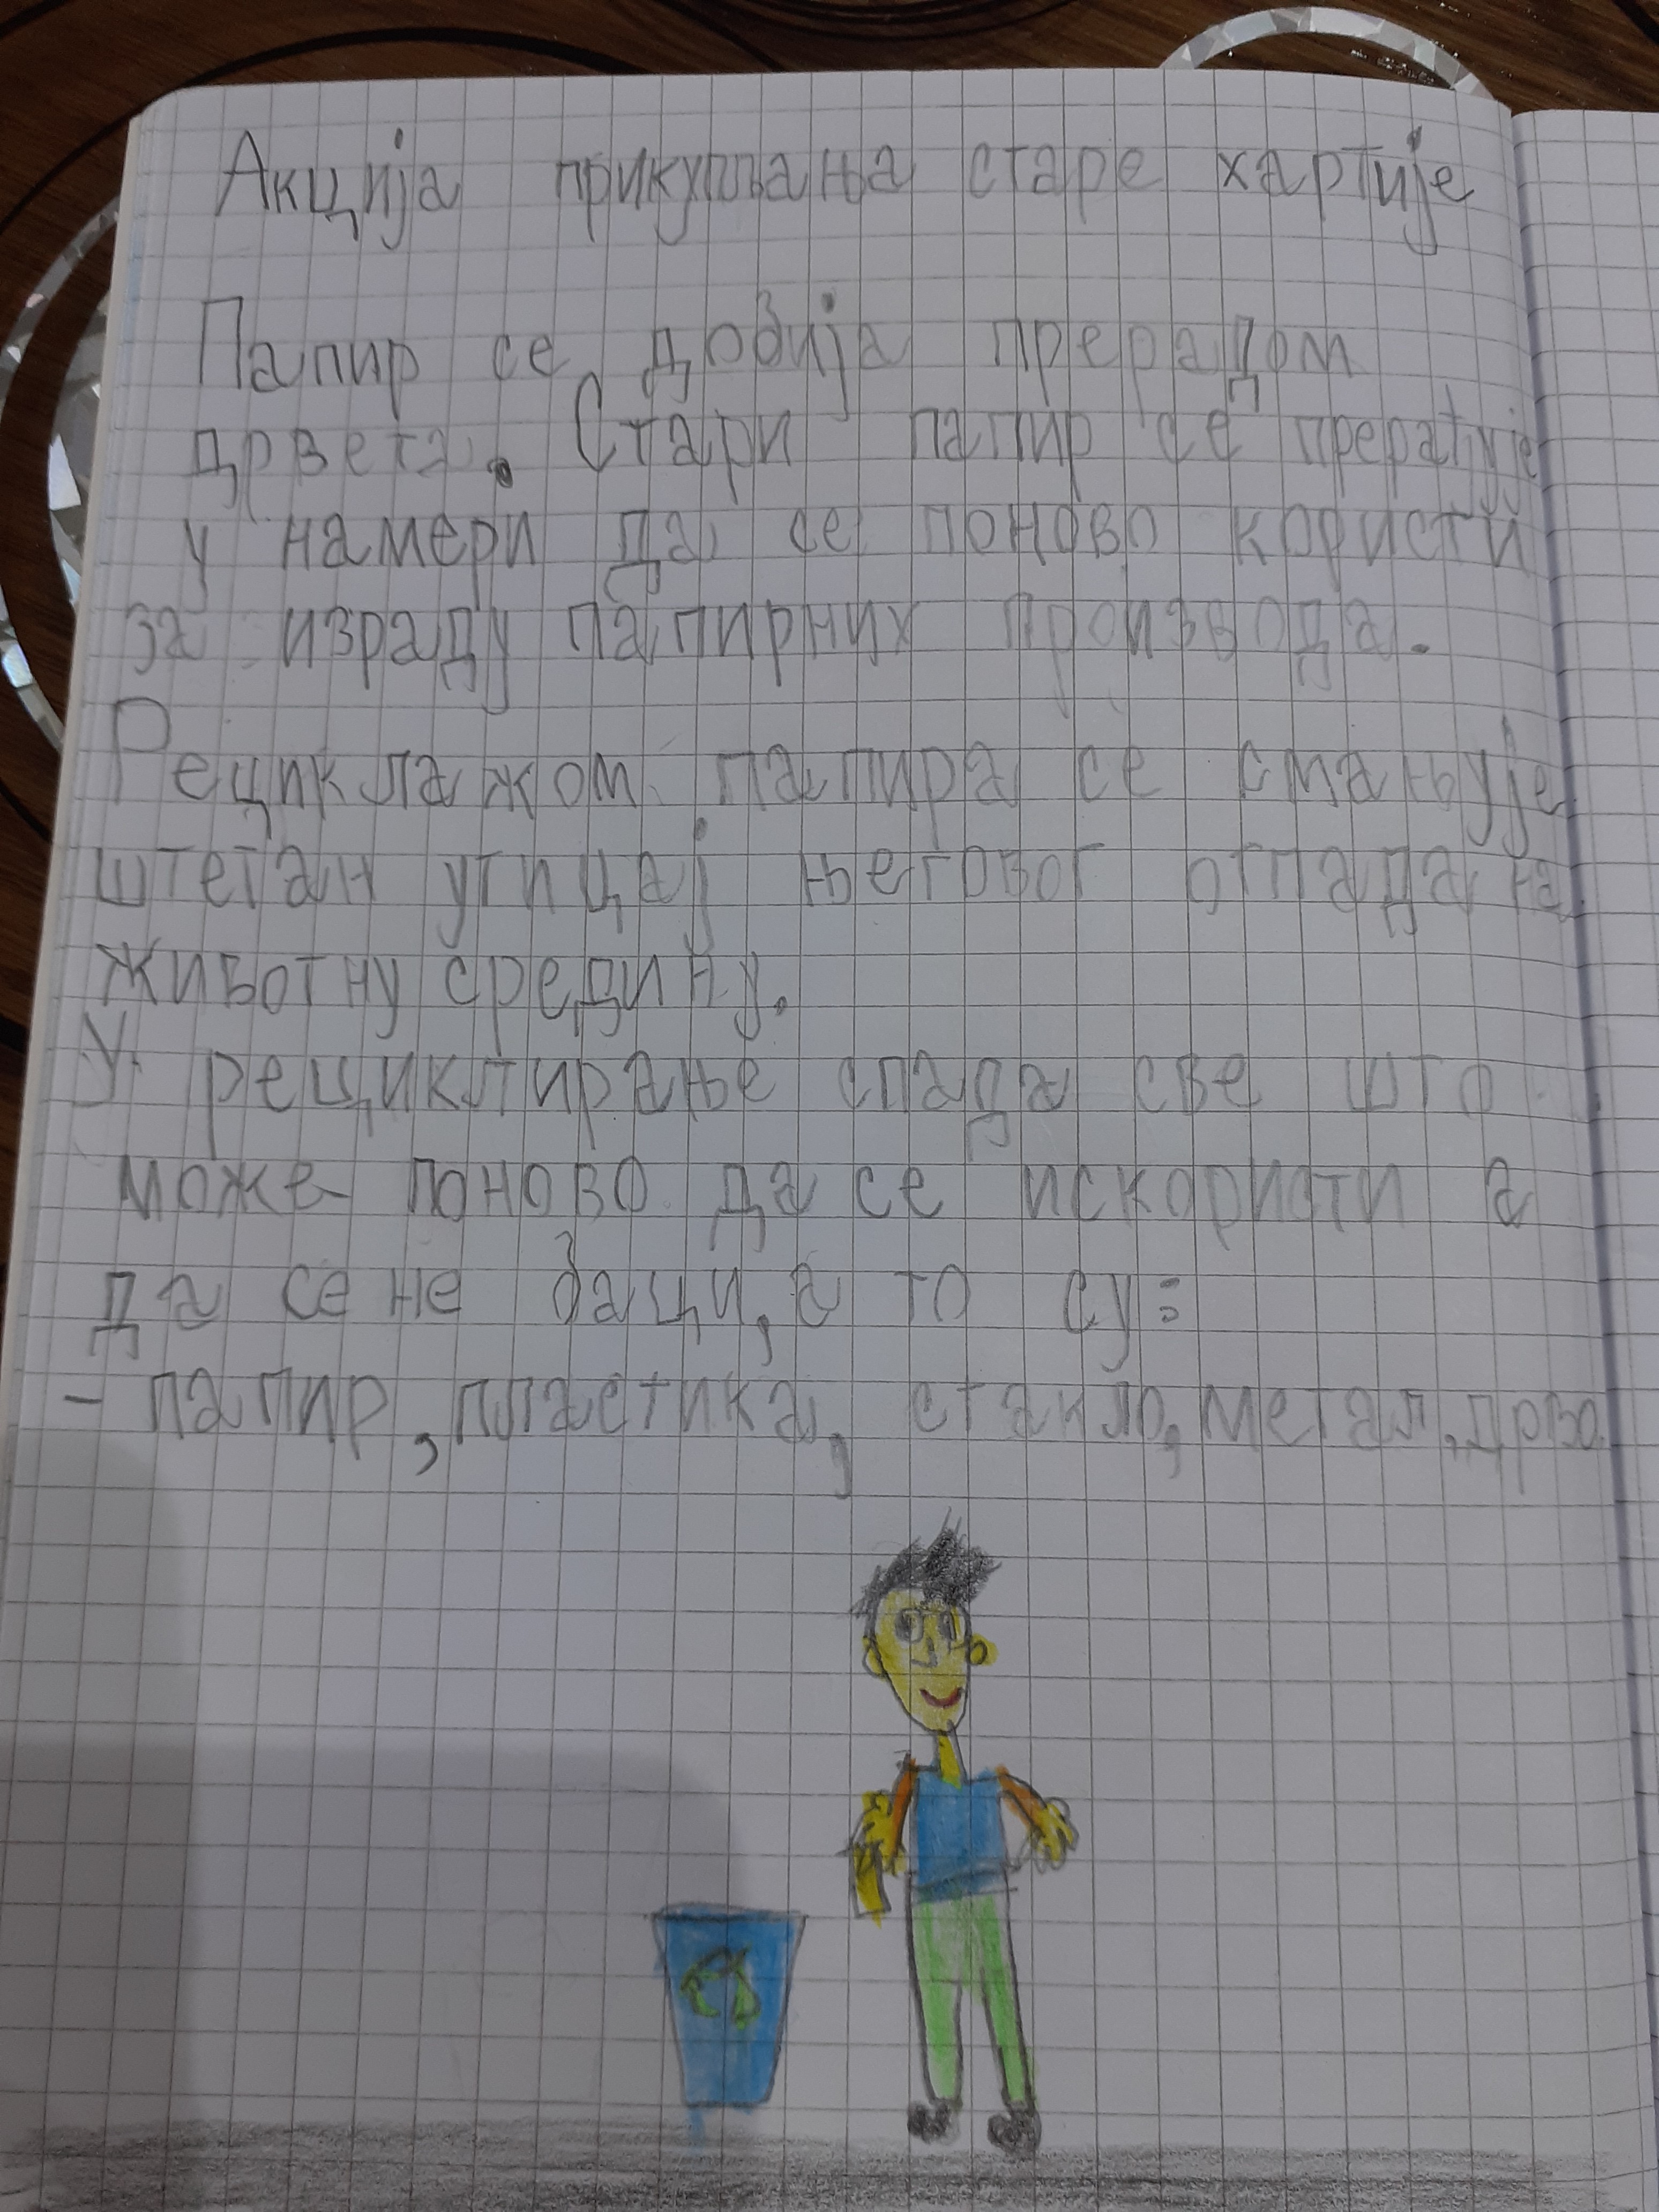 Акција прикупљања старе хартије
Папир се добија прерадом
дрвета. Стари папир се прерађује
у намери да се поново користи
за израду папирних производа.
Рециклажом папира се смањује
штетан утицај његовог отпада на
животну средину.
У рециклирање спада све што
може поново да се искористи а
да се не баци, а то су:
- папир, пластика, стакло, метал, дрво.